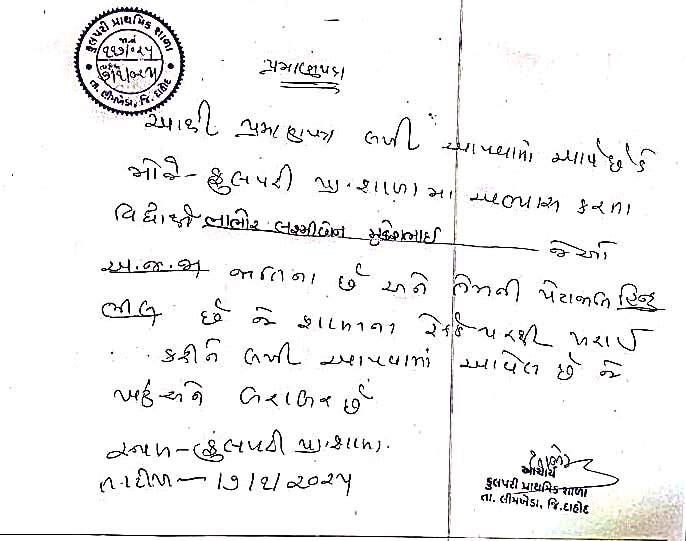 ફુલપરી પ્રાથમિક શાળા
જા.નં.
૧૧૭/૦૨૫
તારીખ
૭/૧/૦૨૫
તા. લીમખેડા, જિ. દાહોદ
પ્રમાણપત્ર
આથી પ્રમાણપત્ર લખી આપવામાં આવે છે કે
મોજે - ફુલપરી પ્રા. શાળામા અભ્યાસ કરતા
વિદ્યાર્થી લક્ષ્મીબેન મુકેશભાઈ જેઓ
અ.જ.જા જાતિના છે અને તેમની પેટાજાતિ હિન્દુ
ભીલ છે જે શાળાના રેકર્ડ પરથી ખરાઈ
કરીને લખી આપવામાં આવેલ છે જે
બરાબર છે
સ્થળ - ફુલપરી પ્રા. શાળા.
તારીખ - ૭/૧/૨૦૨૫
આચાર્ય
ફુલપરી પ્રાથમિક શાળા
તા. લીમખેડા, જિ.દાહોદ